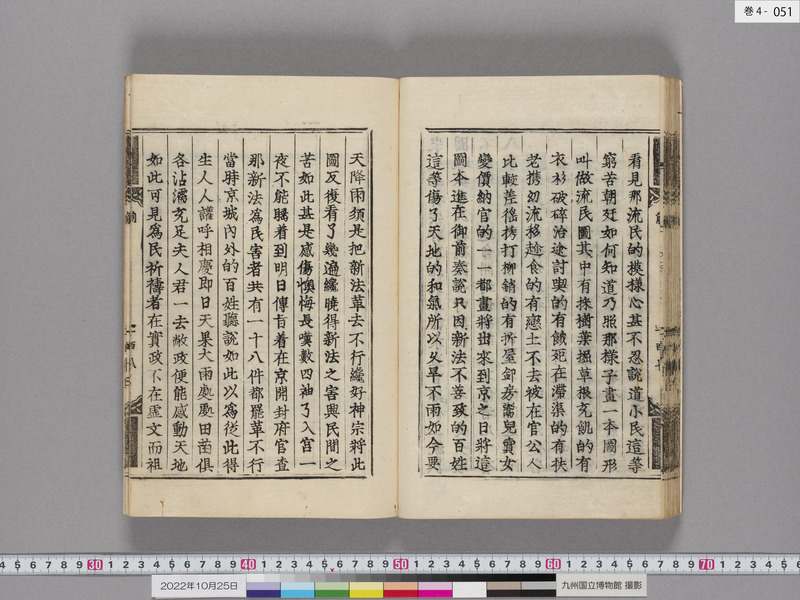 巻4 - 051
看見那流民的模樣心甚不忍說道小民這等
窮苦朝廷如何知道乃照那樣子畫一本圖形
叫做流民圖其中有採樹葉掘草根充飢的有
衣衫破碎沿途討喫的有餓死在溝渠的有扶
老携幼流移趁食的有戀土不去被在官公人
比較差徭拷打枷鎖的有折屋卸房鬻兒賣女
變價納官的一一都畫將出來到京之日將這
圖本進在御前奏說只因新法不善致的百姓
這等傷了天地的和氣所以久旱不雨如今要
天降雨須是把新法革去不行纔好神宗將此
圖反復看了幾遍纔曉得新法之害與民間之
苦如此甚是感傷懊悔長嘆數四袖了入宮一
夜不能睡着到明日傳旨着在京開封府官查
那新法為民害者共有一十八件都罷革不行
當時京城內外的百姓聽說如此以為從此得
生人人讙呼相慶即日天果大雨處處田苗俱
各沾濡充足夫人君一去敝政便能感動天地
如此可見為民祈禱者在實政不在虛文而祖
2022年10月25日
九州国立博物館 撮影